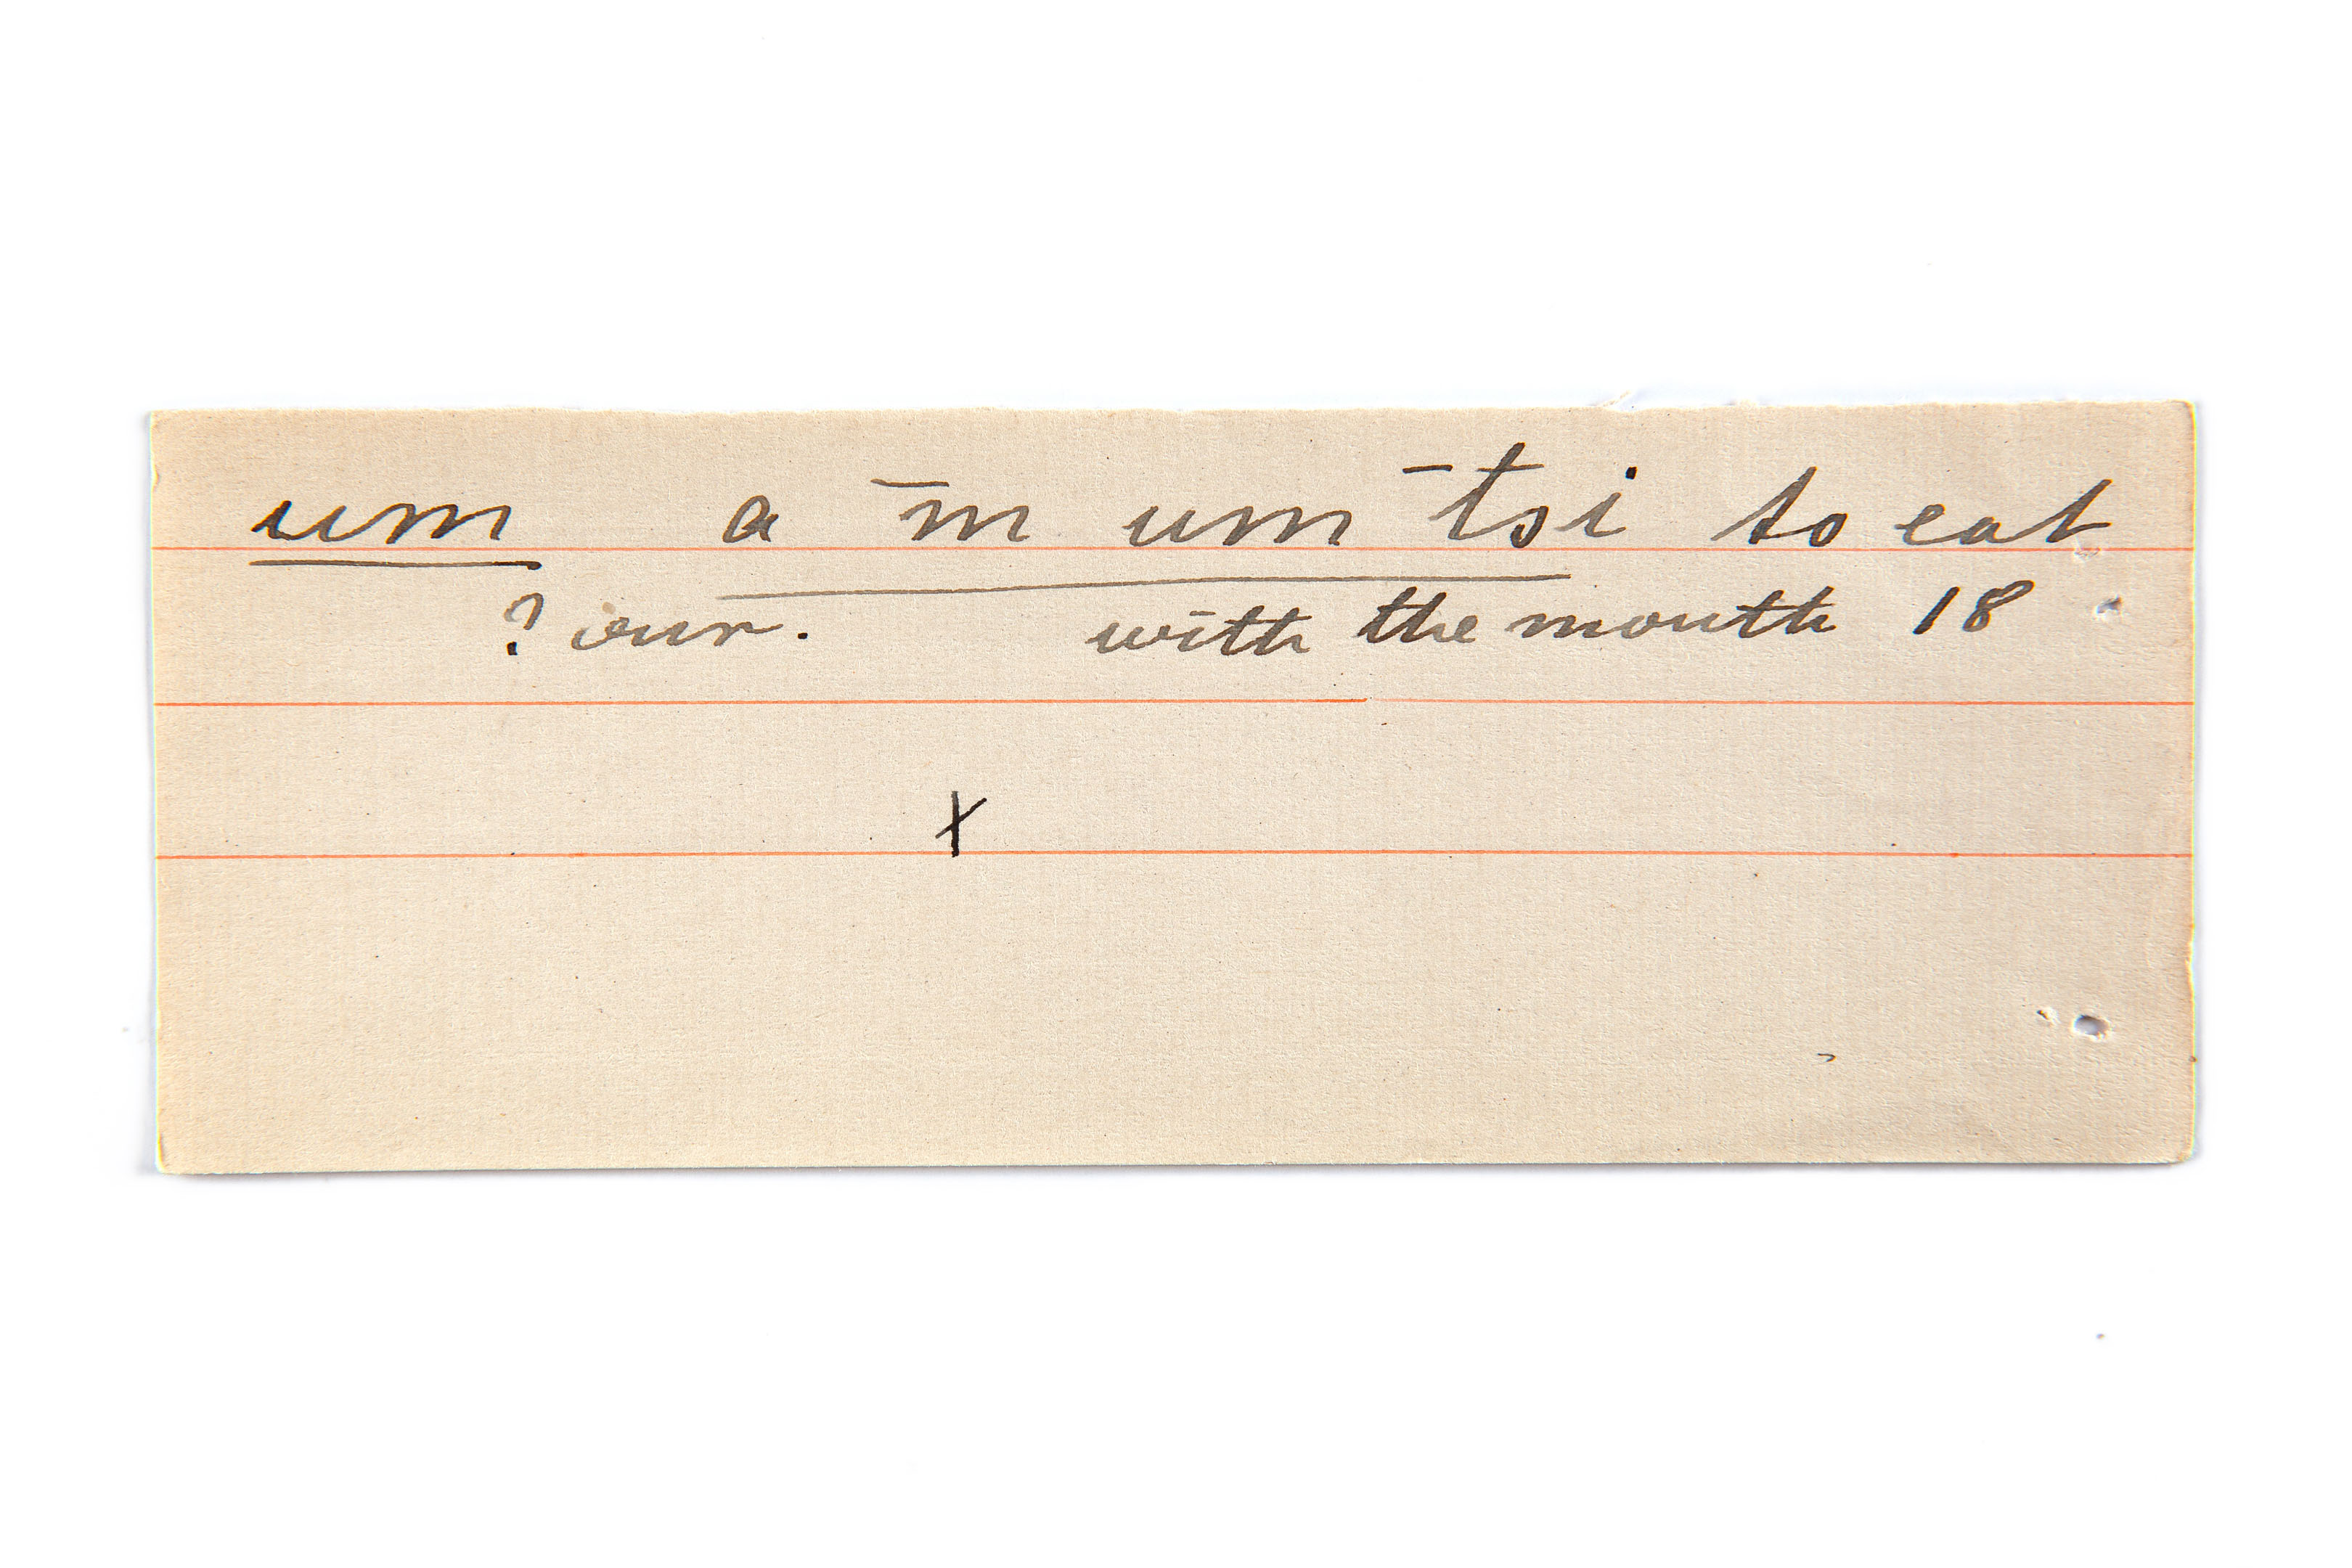 um a m̄ um ̄tsi to eat
? our. with the mouth 18
x